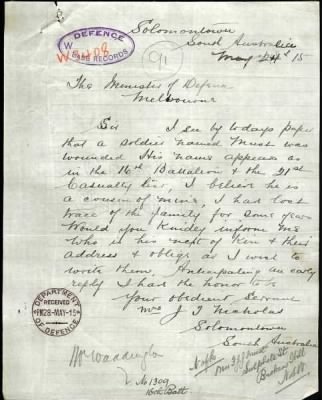 Solomontown
South Australia
May 24th 15
DEFENCE
W
BASE RECORDS
The Minister of Defence
Melbourne
Sir I see by todays paper
that a soldier named Must was
wounded His name appears as
in the 16th Battalion & the 21st
Casualty list, I believe he is
a cousin of mine, I had lost
trace of the family for some years
Would you kindly inform me
who is his next of kin & their
address & oblige as I wish to
write them, Anticipating an early
reply I had the honor to be
Your obedient Servant
Mrs J T Nicholas
Solomontown
South Australia
DEPARTMENT
RECEIVED
PM 28-MAY-15
OF DEFENCE
Mr Waddington
No 1309
16th Batt
Sulphide St
Broken Hill
NSW